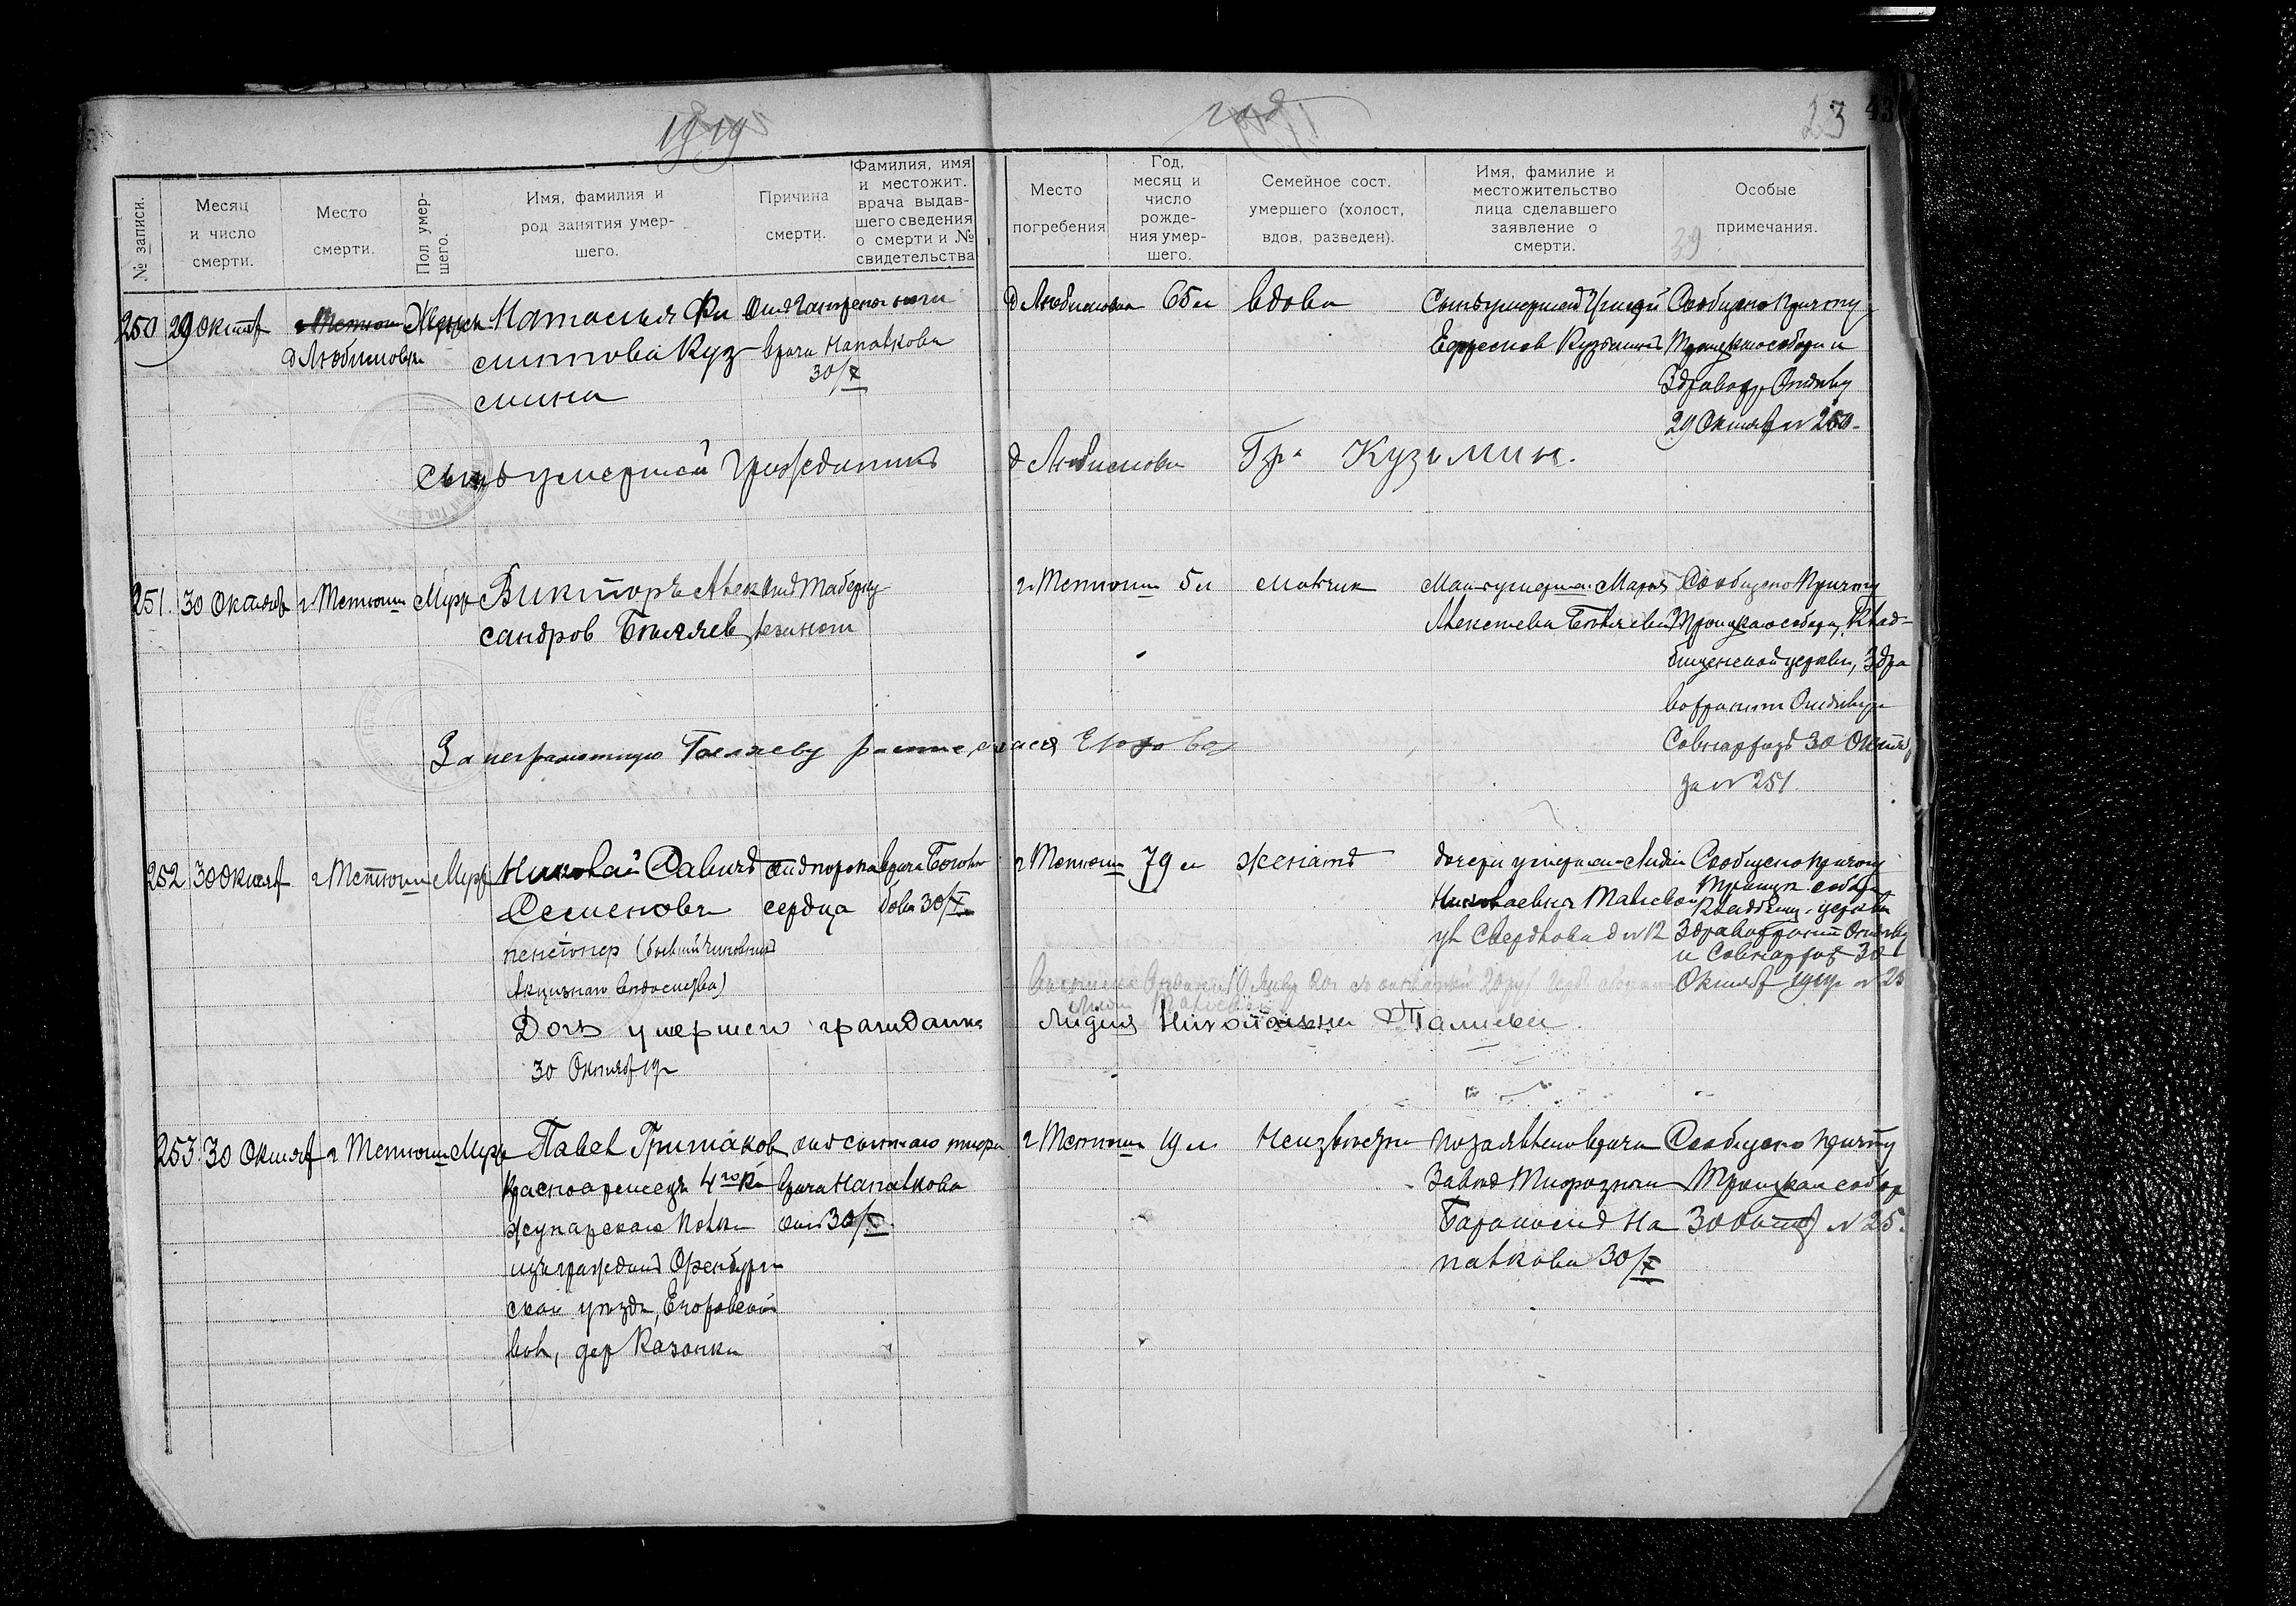 1919
год
23
43
№ записи.
Месяц
и число
смерти.
Место
смерти.
Пол умер-
шего.
Имя, фамилия и
род занятия умер-
шего.
Причина
смерти.
Фамилия, имя
и местожит.
врача выдав-
шего сведения
о смерти и №
свидетельства
Место
погребения
Год,
месяц и
число
рожде-
ния умер-
шего.
Семейное сост.
умершего (холост,
вдов, разведен).
Имя, фамилие и
местожительство
лица сделавшего
заявление о
смерти.
Особые
примечания.
39
250
29 Октяб
г Тетюши
д Любимовка
Женск
Наталья Фи
липпова Куз
мина
От гангрены ноги
врача Напалкова
30/X
д Любимовка
65 л
вдова
Сын умершей
Кузьмин
Сообщено Причту
Троицкаго собора и
Здравохр Отделу
29 Октяб № 250
Сын умершей гражданин
д Любимовка
Гр. Кузьмин.
251.
30 Октяб
г Тетюши
Муж
Викторъ Алек
сандров Беляев
От Тубер
г Тетюши
5 л
мальчик
Мать умершаго Марья
Алексеева Беляева
Сообщено Причту
Троицкаго собора, Клад-
бищенской церкви, Здра
вохранит Отделу и
Совнархозъ 30 Октяб
за № 251.
За неграмотную Беляеву расписалася
252
30 Октяб
г Тетюши
Муж
Николай Савичъ
Семеновъ
пенсионер (бывший чиновник
Акцизнаго ведомства)
от порока
сердца
врача Бого
бова 30/X
г Тетюши
79 л
женатъ
дочери умершаго Лидии
Николаевны
ул Свердлова д № 12
Сообщено причту
Троицк. собора
Кладбищ. церкви
Здравохранит Отделу
и Совнархоз 30
Октяб 1919 г № 25
Дочь умершего гражданка
Лидия Николаевна
30 Октяб 19 г
253
30 Октяб
г Тетюши
Муж
Павел Гришаков
Красноармеец 4го Ка
полка
из граждан Оренбург
ской уезда, Егоровской
вол, дер Казанки
от сыпнаго тифа
врача Напалкова
от 30/X
г Тетюши
19 л
Неизвестно
по заявлению врача
Завед Тифозным
Бараком На
палкова 30/X
Сообщено причту
Троицкаго собор
30 Октяб № 25